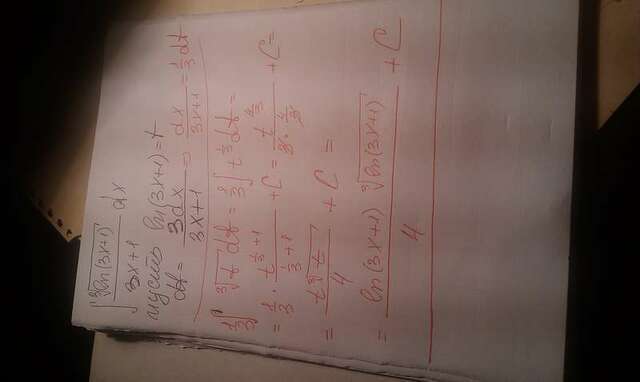 ∫ ∛ln(3x+1) / (3x+1) dx
пусть ln(3x+1) = t
dt = 3dx / (3x+1) ⇒ dx / (3x+1) = 1/3 dt
1/3 ∫ ∛t dt = 1/3 ∫ t^(1/3) dt =
= 1/3 · t^(1/3+1) / (1/3+1) + C = t^(4/3) / (3 · 4/3) + C =
= t∛t / 4 + C =
= ln(3x+1) ∛ln(3x+1) / 4 + C